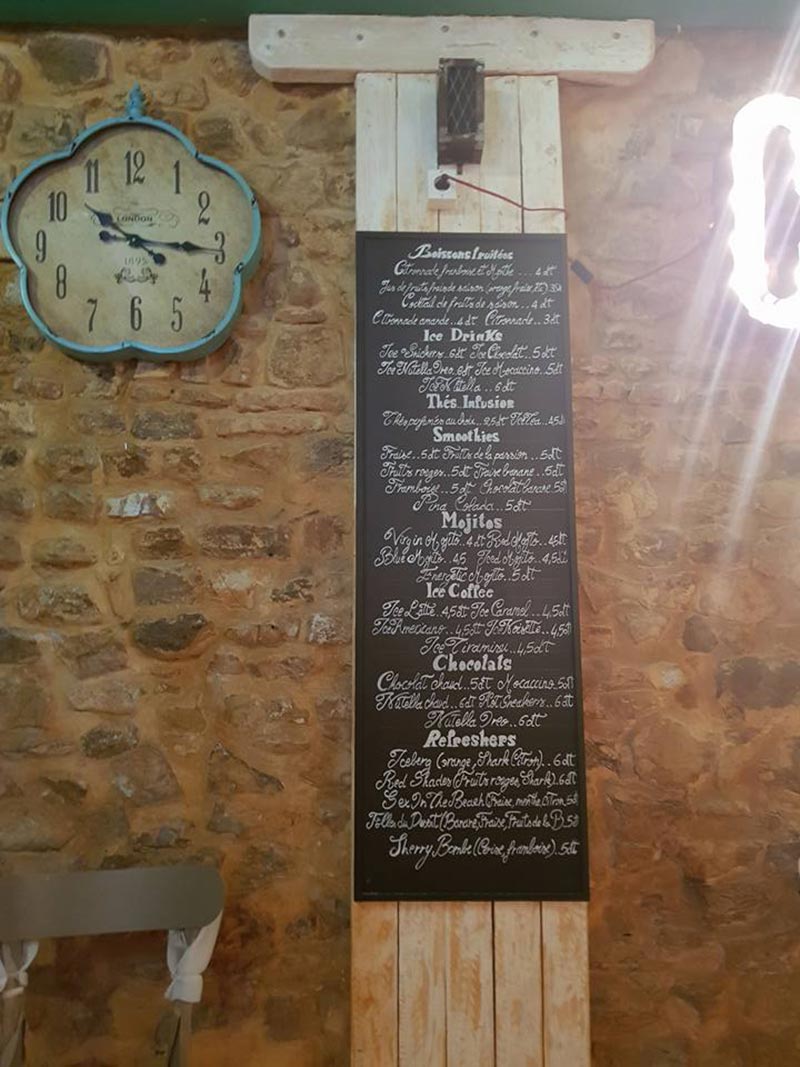 12
11 1
10 2
9 3
8 4
7 5
6
LONDON
1895
Boissons fruitées
Citronnade framboise et Menthe ... 4 dt
Jus de fruits frais de saison (orange, fraise, Etc)
Cocktail de fruits de saison .. 4 dt
Citronnade amande..4 dt Citronnade..3dt
Ice Drinks
Ice Snickers..6dt Ice Chocolat..5dt
Ice Nutella Oreo..6dt Ice Mocaccino..5dt
Ice Nutella...6dt
Thés..Infusion
Thé parfumé au choix... Ice Tea...4,5dt
Smoothies
Fraise..5dt Fruits de la passion..5dt
Fruits rouges..5dt Fraise banane..5dt
Framboise..5dt Chocolat banane.5dt
Pina Colada..5dt
Mojitos
Virgin Mojito.4.5dt Red Mojito..4.5dt
Blue Mojito..4,5 Mojito..4,5dt
Energetic Mojito..5dt
Ice Coffee
Ice Latté..4,5dt Ice Caramel...4,5dt
Ice Americano..4,5dt Ice Noisette..4,5dt
Ice Tiramisu..4,5dt
Chocolats
Chocolat chaud..5dt Mocaccino.5dt
Nutella chaud..6dt Hot Sneakers..6dt
Nutella Oreo..6dt
Refreshers
Iceberg (orange, Shark Citron)..6dt
Red Shades (Fruits rouges, Shark).6dt
Sex In The Beach (Fraise, menthe, Citron,5dt
Folles du Desert (Banane, Fraise, Fruits de la B.5dt
Sherry Bombe (Cerise, framboise)..5dt